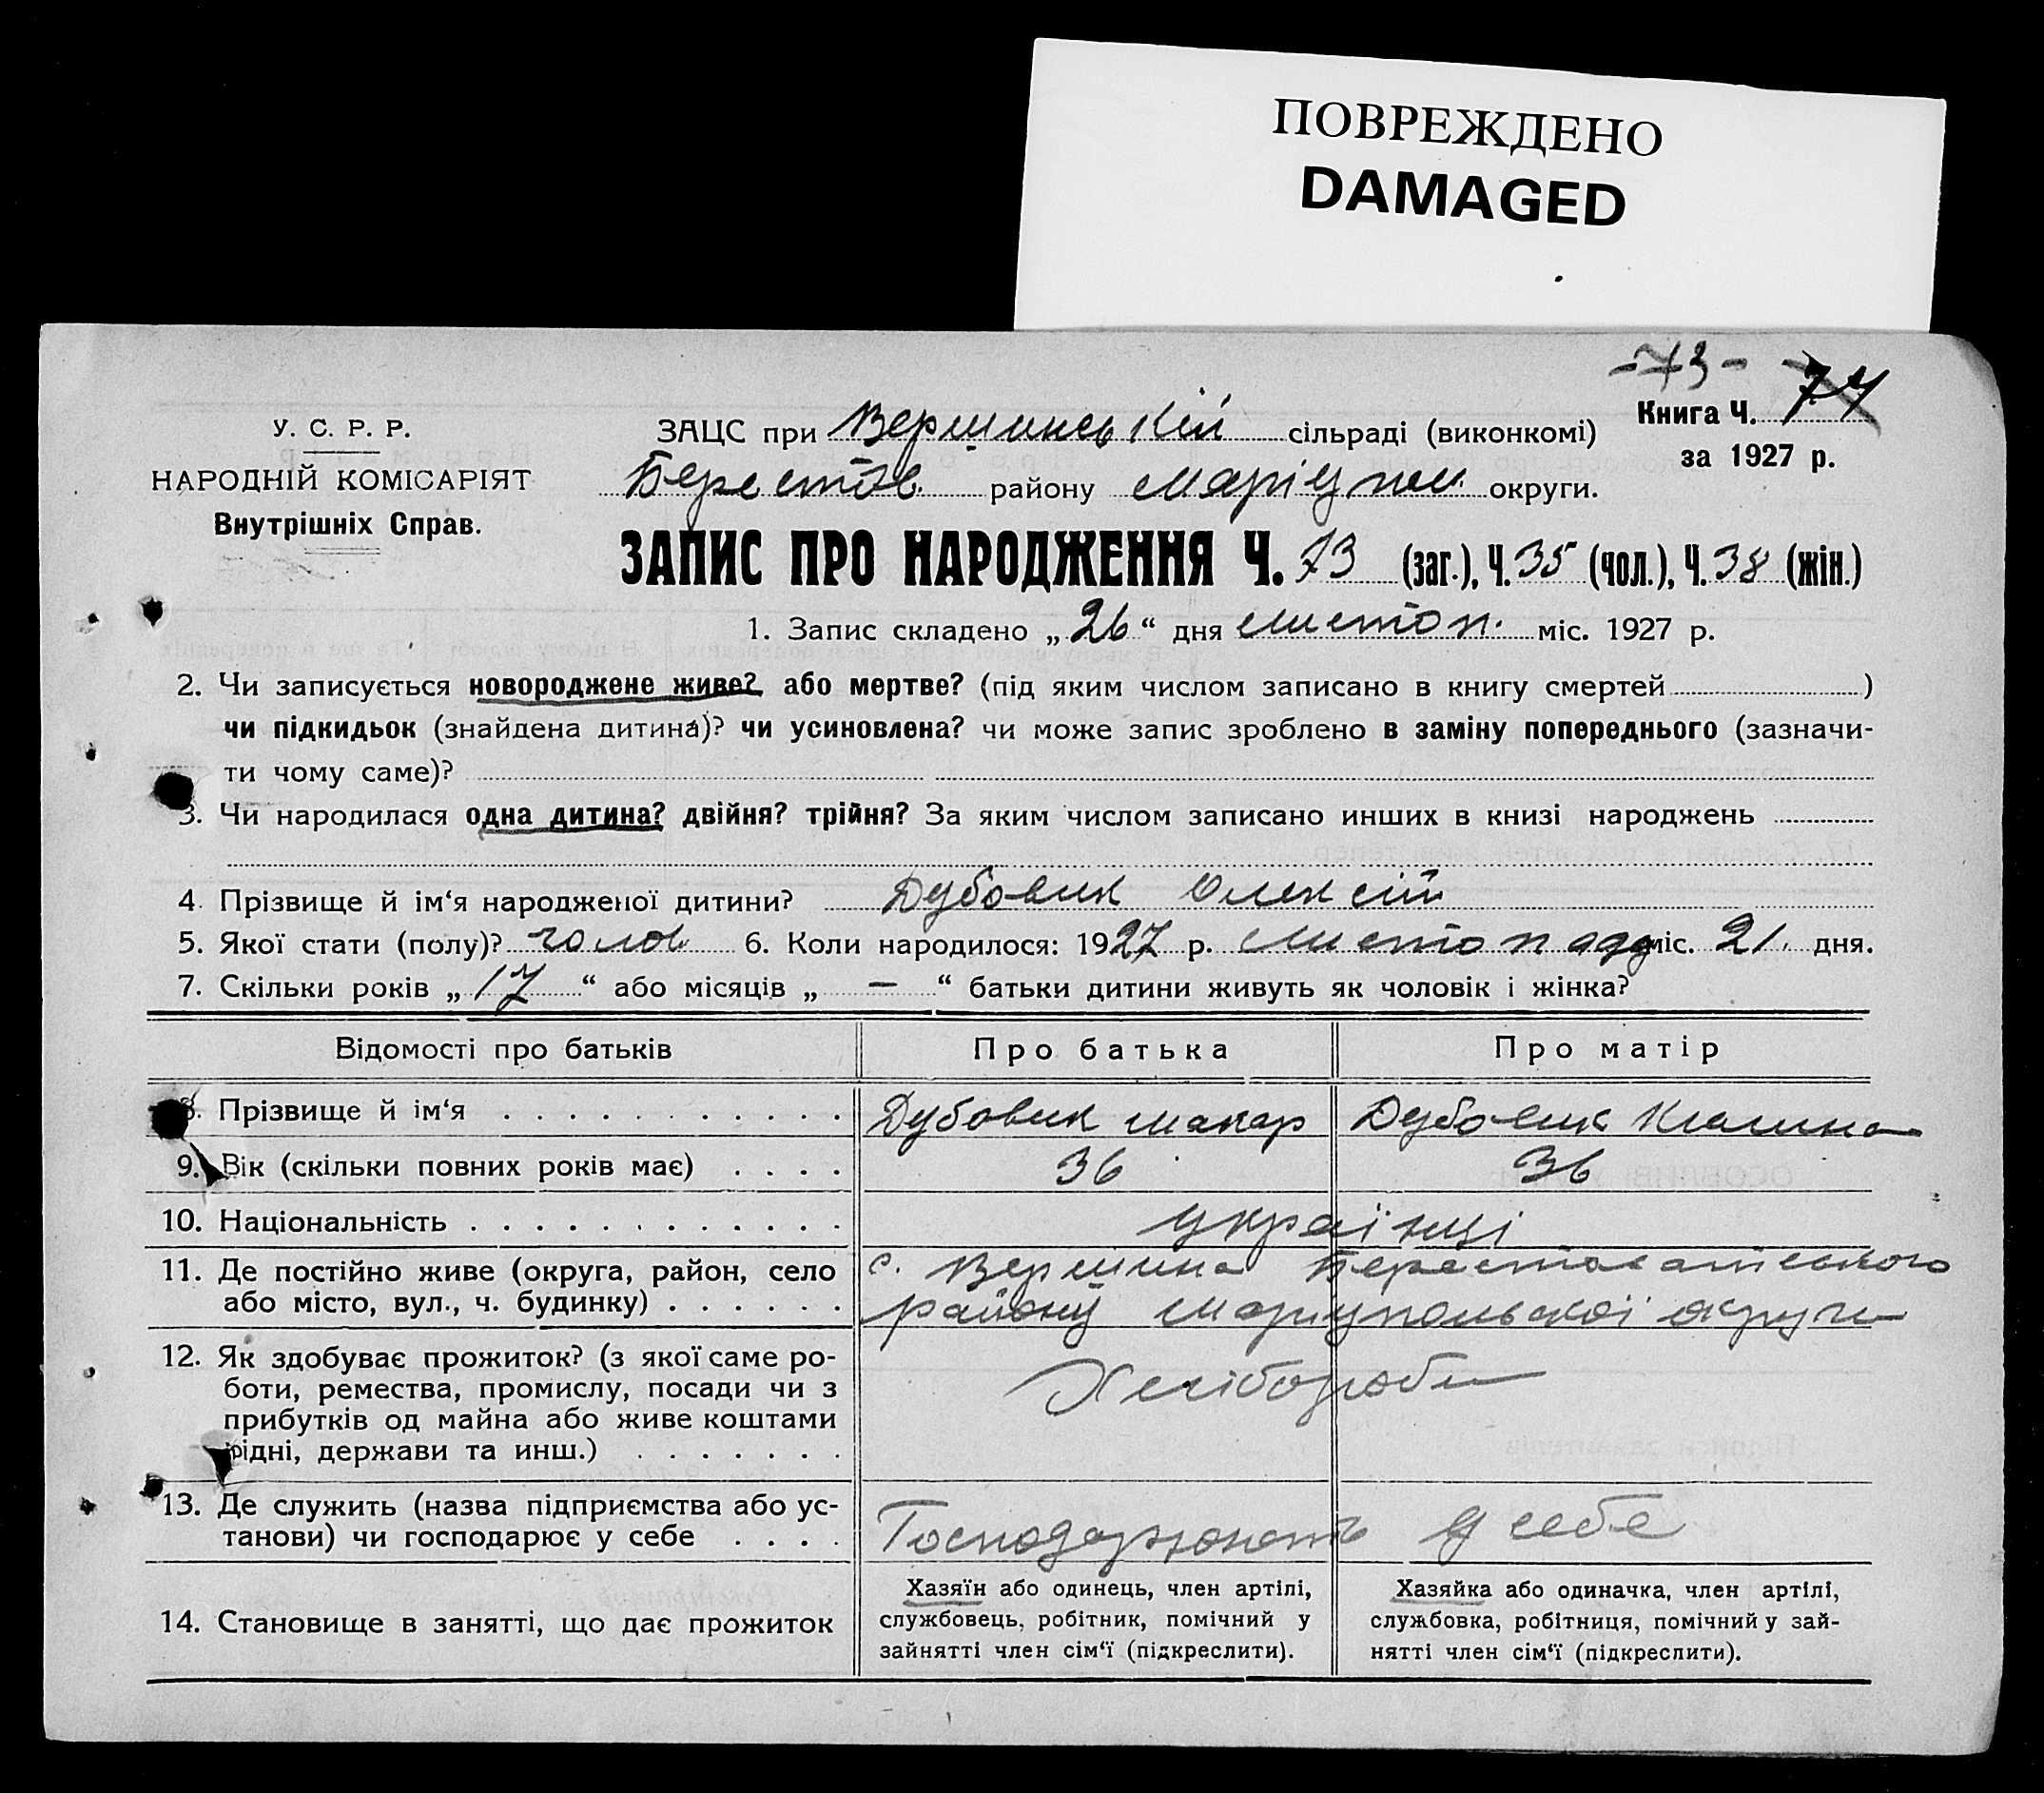 ПОВРЕЖДЕНО
DAMAGED
-73-
У. С. Р. Р.
НАРОДНІЙ КОМІСАРІЯТ
Внутрішніх Справ.
ЗАЦС при Вершинській сільраді (виконкомі)
Берестов. району Маріупол. округи.
Книга Ч. 74
за 1927 р.
ЗАПИС ПРО НАРОДЖЕННЯ Ч. 73 (заг.), Ч. 35 (чол.), Ч. 38 (жін.)
1. Запис складено „26“ дня листоп. міс. 1927 р.
2. Чи записується новороджене живе? або мертве? (під яким числом записано в книгу смертей )
чи підкидьок (знайдена дитина)? чи усиновлена? чи може запис зроблено в заміну попереднього (зазначи-
ти чому саме)?
3. Чи народилася одна дитина? двійня? трійня? За яким числом записано инших в книзі народжень
4. Прізвище й ім‘я народженої дитини? Дубовик Олексій
5. Якої стати (полу)? чолов 6. Коли народилося: 1927 р. листопаду міс. 21 дня.
7. Скільки років „17“ або місяців „ — “ батьки дитини живуть як чоловік і жінка?
Відомості про батьків Про батька Про матір
8. Прізвище й ім‘я Дубовик Макар Дубовик
9. Вік (скільки повних років має) 36 36
10. Національність українці
11. Де постійно живе (округа, район, село
або місто, вул., ч. будинку)
с. Вершина Берестоватського
району Маріупольської округи
12. Як здобуває прожиток? (з якої саме ро-
боти, ремества, промислу, посади чи з
прибутків од майна або живе коштами
рідні, держави та инш.)
Хлібороби
13. Де служить (назва підприємства або ус-
танови) чи господарює у себе
Господарюють у себе
14. Становище в занятті, що дає прожиток
Хазяїн або одинець, член артілі,
службовець, робітник, помічний у
зайнятті член сім‘ї (підкреслити).
Хазяйка або одиначка, член артілі,
службовка, робітниця, помічний у зай-
нятті член сім‘ї (підкреслити).